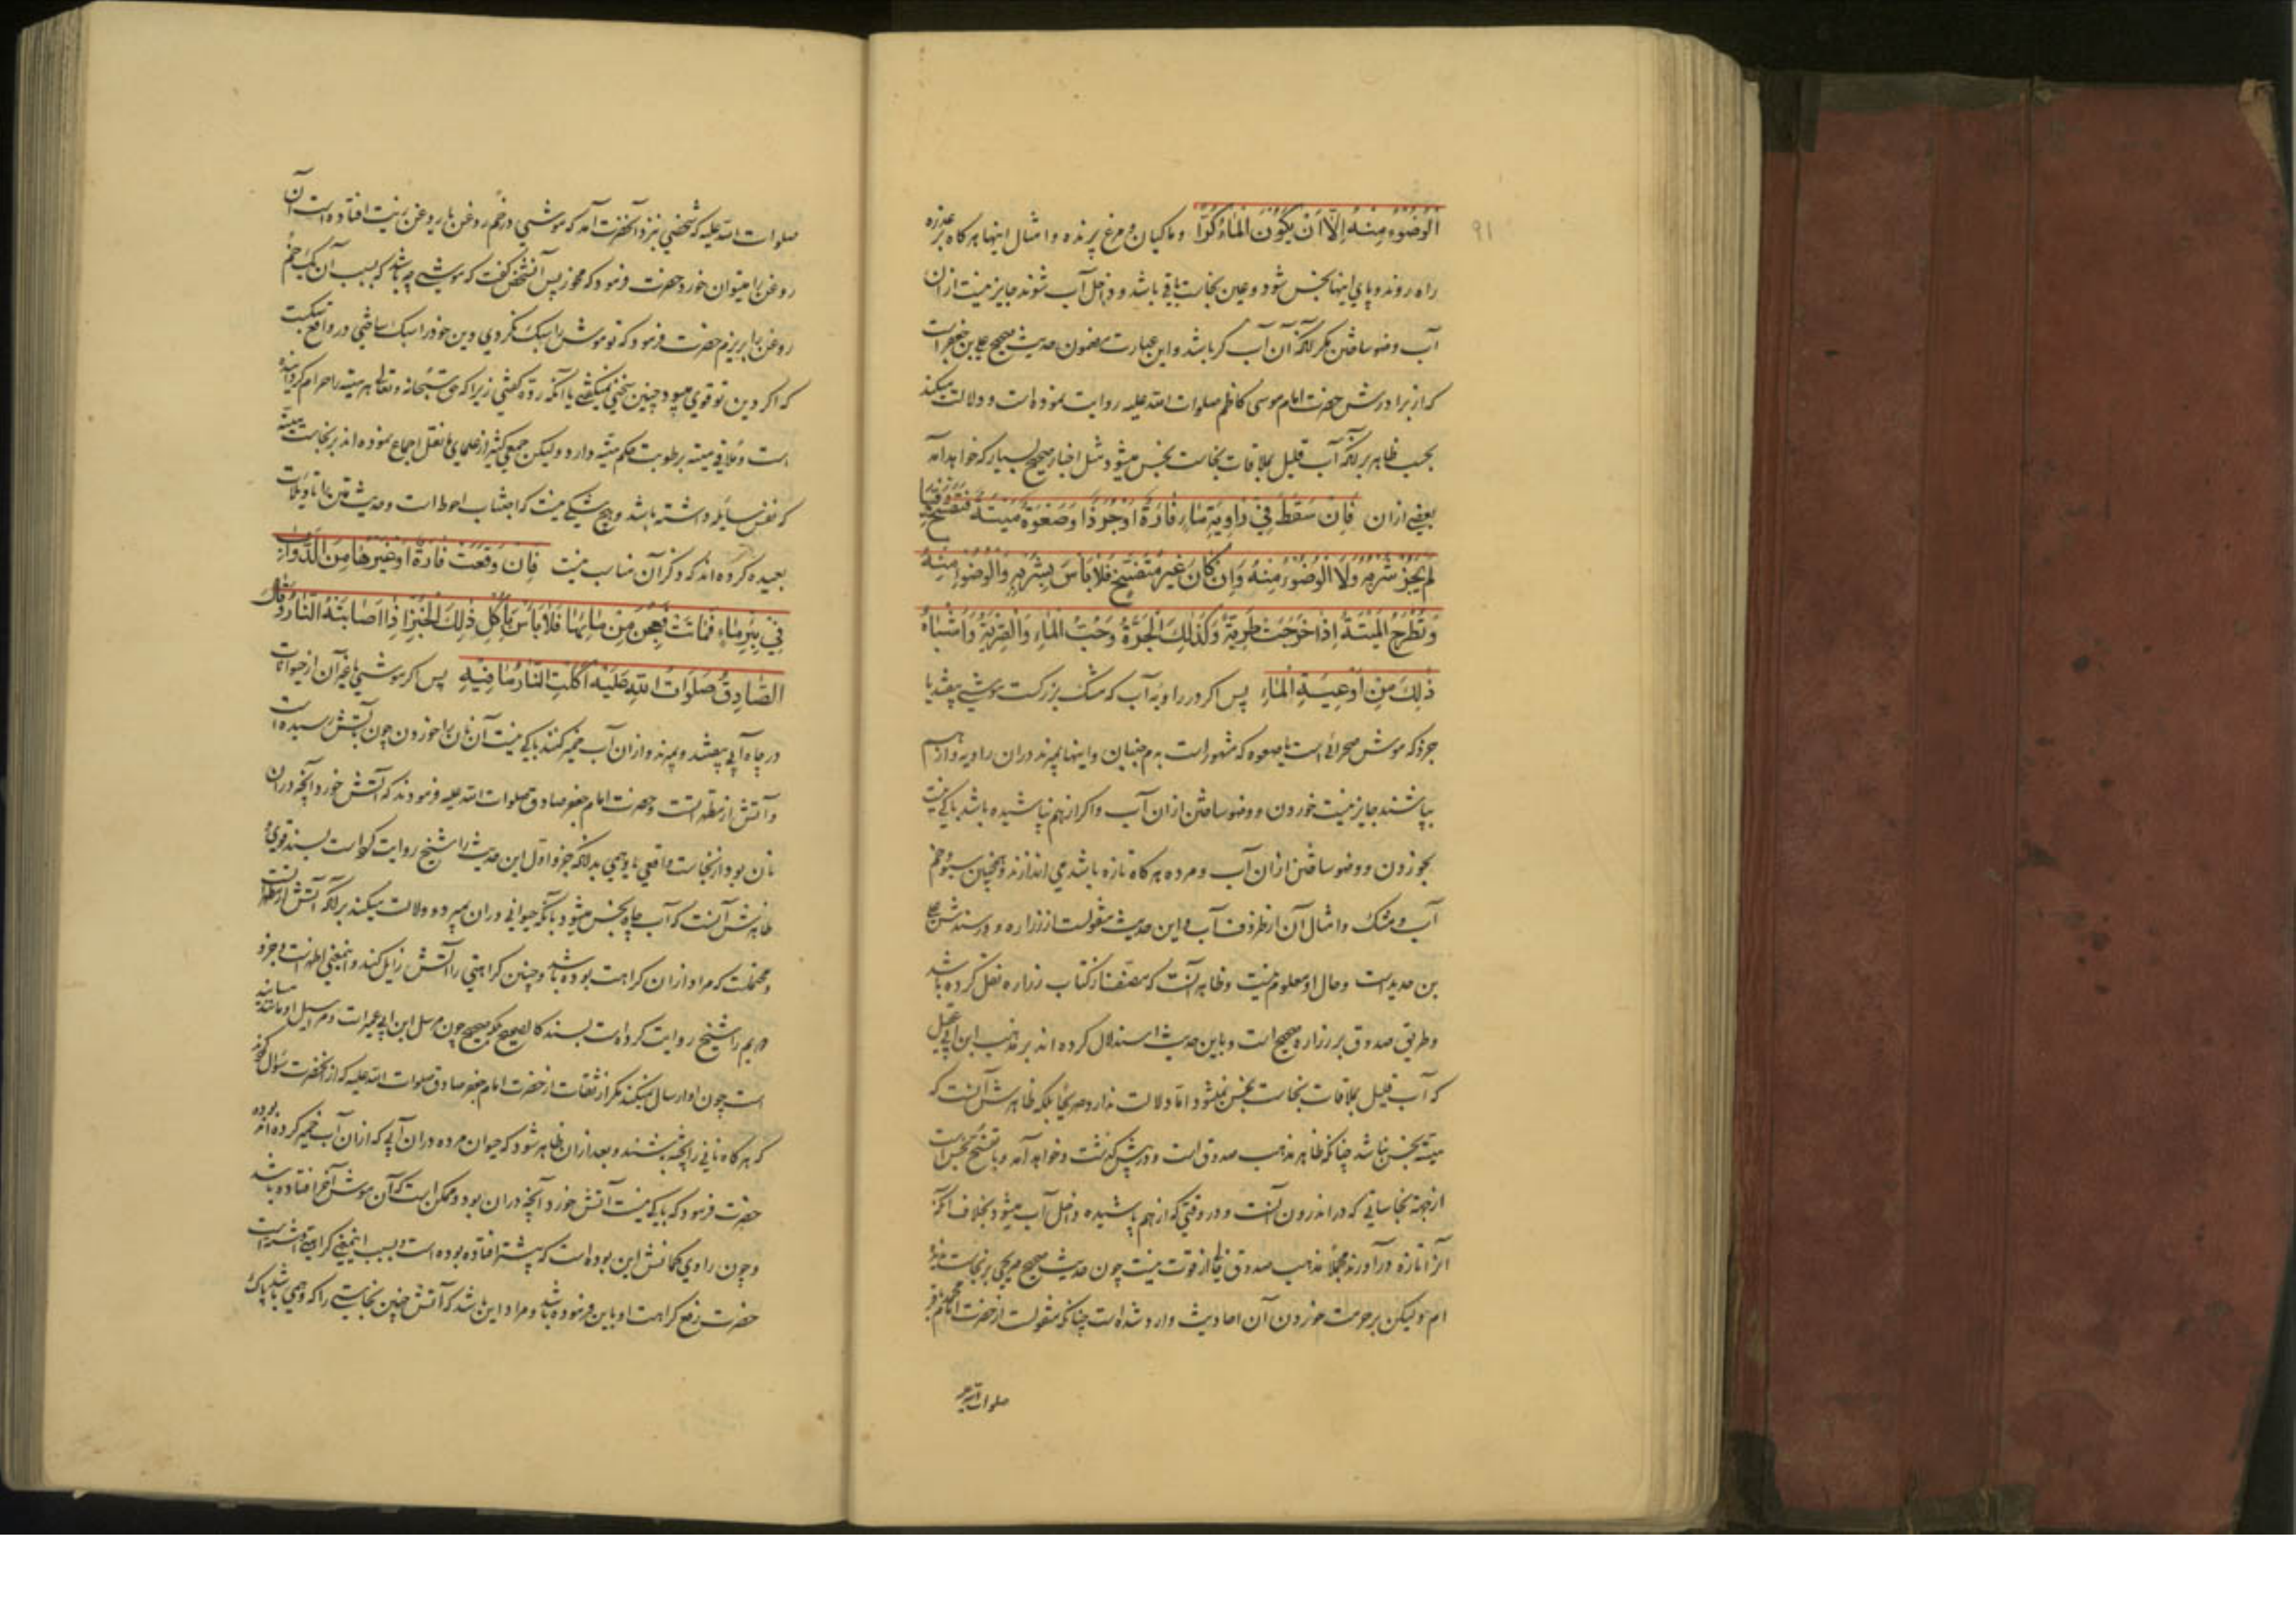 ۹۱
الْوُضُوءُ مِنْهُ إِلَّا أَنْ يَكُونَ الْمَاءُ كُرًّا وماکیان و مرغ پرنده و امثال اینها هرگاه بر عذره
راه روند و پای اینها نجس شود و عین نجاست باقی باشد و داخل آب شوند جایز نیست از آن
آب وضو ساختن مگر آنکه آن آب کر باشد و این عبارت مضمون حدیث صحیح علی بن جعفر است
که از برادرش حضرت امام موسی کاظم صلوات الله علیه روایت نموده است و دلالت میکند
بحسب ظاهر بر آنکه آب قلیل بملاقات نجاست نجس میشود مثل اخبار صحیح بسیار که خواهد آمد
بعضی از آن فَإِنْ سَقَطَ فِي رَاوِيَةِ مَاءٍ فَارَةٌ أَوْ جُرَذٌ أَوْ صَعْوَةٌ مَيْتَةٌ فَتَفَسَّخَ فِيهَا
لَمْ يَجُزْ شُرْبُهُ وَلَا الْوُضُوءُ مِنْهُ وَإِنْ كَانَ غَيْرَ مُتَفَسِّخٍ فَلَا بَأْسَ بِشُرْبِهِ وَالْوُضُوءِ مِنْهُ
وَتُطْرَحُ الْمَيْتَةُ إِذَا خَرَجَتْ طَرِيَّةً وَكَذَلِكَ الْجَرَّةُ وَحُبُّ الْمَاءِ وَالْقِرْبَةُ وَأَشْبَاهُ
ذَلِكَ مِنْ أَوْعِيَةِ الْمَاءِ پس اگر در راویه آب که مشک بزرگست موشی بیفتد یا
جرذ که موش صحرائی است یا صعوه که مشهور است به دم جنبان و اینها بمیرند در آن راویه و از هم
بپاشند جایز نیست خوردن و وضو ساختن از آن آب و اگر از هم نپاشیده باشد باکی نیست
بخوردن و وضو ساختن از آن آب و مرده هرگاه تازه باشد می اندازند و همچنین سبو و خم
آب و مشک و امثال آن از ظروف آب و این حدیث منقولست از زراره و در سندش علی
بن حدید است و حال او معلوم نیست و ظاهر آنست که مصنف از کتاب زراره نقل کرده باشد
وطریق صدوق بر زراره صحیح است و باین حدیث استدلال کرده اند بر مذهب ابن ابی عقیل
که آب قلیل بملاقات نجاست نجس نمیشود اما دلالت ندارد صریحا بلکه ظاهرش آنست که
میته نجس نباشد چنانکه ظاهر مذهب صدوق است و در پیش گذشت و خواهد آمد و با تفسخ نجس است
از جهة نجاساتی که در اندرون آنست و در وقتی که از هم پاشیده داخل آب میشود بخلاف آنکه
آنرا تازه در آورند مجملا مذهب صدوق خالی از قوت نیست چون حدیث صحیح صریحی بر نجاست ندیده
ام ولیکن بر حرمت خوردن آن احادیث وارد شده است چنانکه منقولست از حضرت امام محمد باقر
صلوات الله علیه
صلوات الله علیه که شخصی بنزد آنحضرت آمد که موشی در خم روغن یا روغن زیت افتاده است آن
روغن را میتوان خورد حضرت فرمود که مخور پس آنشخص گفت که موشی چه باشد که بسبب آن یک خم
روغن را بریزم حضرت فرمود که تو موش را سبک نکردی دین خود را سبک ساختی در واقع سبکست
که اگر دین تو قوی میبود چنین سخنی نمیگفتی یا آنکه رده گفتی زیرا که حق سبحانه و تعالی هر میته را حرام گردانیده
است و ملاقی میته برطوبت حکم میته دارد و لیکن جمعی کثیر از علمای ما نقل اجماع نموده اند بر نجاست میته
که نفس سایله داشته باشد و هیچ شکی نیست که اجتناب احوط است و حدیث متن را تاویلات
بعیده کرده اند که ذکر آن مناسب نیست فَإِنْ وَقَعَتْ فَارَةٌ أَوْ غَيْرُهَا مِنَ الدَّوَابِّ
فِي بِئْرِ مَاءٍ فَمَاتَتْ فَعُجِنَ مِنْ مَائِهَا فَلَا بَأْسَ بِأَكْلِ ذَلِكَ الْخُبْزِ إِذَا أَصَابَتْهُ النَّارُ وَقَالَ
الصَّادِقُ صَلَوَاتُ اللَّهِ عَلَيْهِ أَكَلَتِ النَّارُ مَا فِيهِ پس اگر موشی یا غیر آن از حیوانات
در چاه آبی بیفتند و بمیرند و از آن آب خمیر کنند باکی نیست آن نان را خوردن چون بآتش رسیده است
و آتش از مطهراتست و حضرت امام جعفر صادق صلوات الله علیه فرمودند که آتش خورد آنچه در آن
نان بود از نجاست واقعی یا وهمی بدانکه جزو اول این حدیث را شیخ روایت کرده است بسند قوی و
ظاهرش آنست که آب چاه نجس میشود بآنکه حیوانی در آن بمیرد و دلالت میکند بر آنکه آتش از مطهراتست
و محتملست که مراد از آن کراهت بوده باشد و چنین کراهتی را آتش زایل کند و اینمعنی اظهر است و جزو
دویم را شیخ روایت کرده است بسند کالصحیح بلکه صحیح چون مرسل ابن ابی عمیر است و مراسیل او مانند مسانید
است چون او ارسال نمیکند مگر از ثقات از حضرت امام جعفر صادق صلوات الله علیه که از آنحضرت سؤال کردند
که هرگاه نانی را پخته باشند و بعد از آن ظاهر شود که حیوان مرده در آن آبی که از آن آب خمیر کرده اند بوده
حضرت فرمود که باکی نیست آتش خورد آنچه در آن بود و ممکن است که آن موش آخر افتاده باشد
و چون راوی گمانش این بوده است که پیشتر افتاده بوده است و بسبب اینمعنی کراهتی داشته است
حضرت رفع کراهت او باین فرموده باشد و مراد این باشد که آتش چنین نجاستی را که وهمی باشد پاک